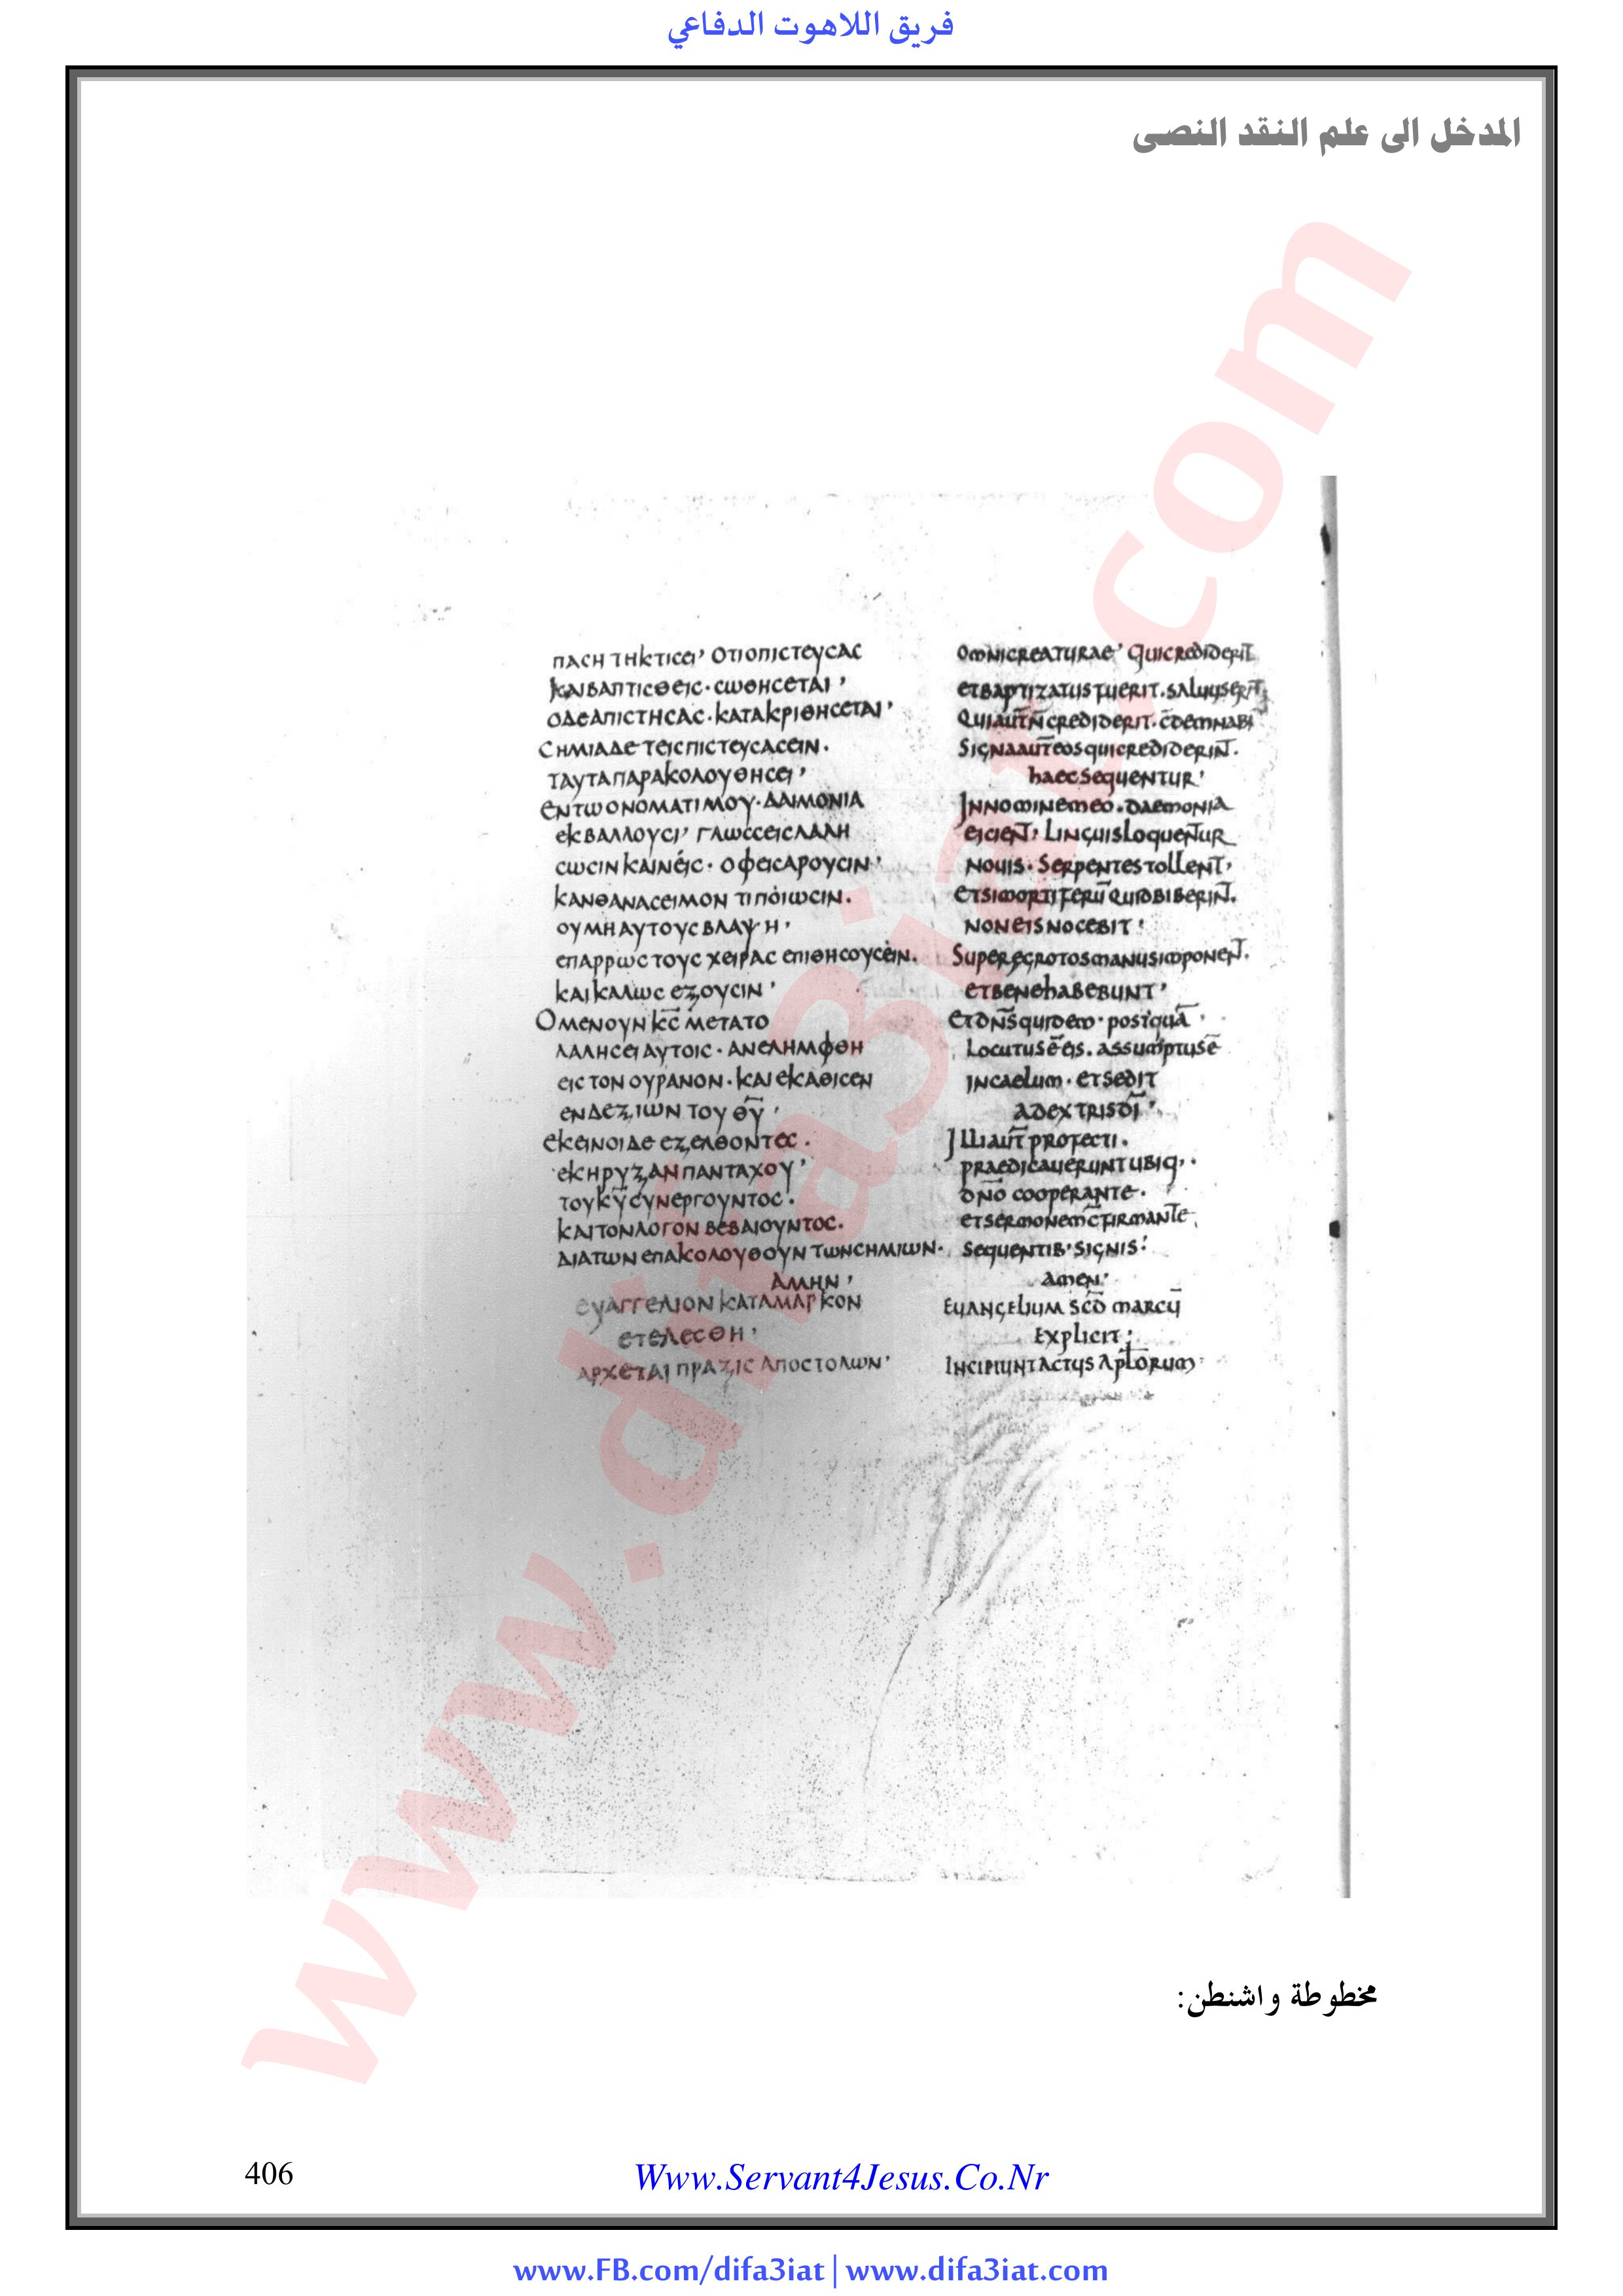 فريق اللاهوت الدفاعي
المدخل الى علم النقد النصى
ΠΑCΗ ΤΗΚΤΙCΕΙ’ ΟΤΙΟΠΙCΤΕΥCΑC
ΚΑΙΒΑΠΤΙCΘΕΙC·CΩΘΗCΕΤΑΙ’
ΟΔΕΑΠΙCΤΗCΑC·ΚΑΤΑΚΡΙΘΗCΕΤΑΙ’
CΗΜΙΑΔΕ ΤΕΙCΠΙCΤΕΥCΑCΕΙΝ.
ΤΑΥΤΑΠΑΡΑΚΟΛΟΥΘΗCΕΙ’
ΕΝΤΩΟΝΟΜΑΤΙΜΟΥ·ΔΑΙΜΟΝΙΑ
ΕΚΒΑΛΛΟΥCΙ’ ΓΛΩCCΕΙCΛΑΛΗ
CΩCΙΝΚΑΙΝΕΙC· ΟΦΕΙCΑΡΟΥCΙΝ’
ΚΑΝΘΑΝΑCΕΙΜΟΝ ΤΙΠΟΙΩCΙΝ.
ΟΥΜΗΑΥΤΟΥCΒΛΑΨΗ’
ΕΠΑΡΡΩCΤΟΥC ΧΕΙΡΑC ΕΠΙΘΗCΟΥCΕΙΝ.
ΚΑΙΚΑΛΩC ΕΞΟΥCΙΝ’
ΟΜΕΝΟΥΝ Κ̅C̅ ΜΕΤΑΤΟ
ΛΑΛΗCΕΙΑΥΤΟΙC·ΑΝΕΛΗΜΦΘΗ
ΕΙCΤΟΝ ΟΥΡΑΝΟΝ·ΚΑΙΕΚΑΘΙCΕΝ
ΕΝΔΕΞΙΩΝ ΤΟΥ Θ̅Υ̅’
ΕΚΕΙΝΟΙΔΕ ΕΞΕΛΘΟΝΤΕC.
ΕΚΗΡΥΞΑΝΠΑΝΤΑΧΟΥ’
ΤΟΥΚ̅Υ̅CΥΝΕΡΓΟΥΝΤΟC.
ΚΑΙΤΟΝΛΟΓΟΝ ΒΕΒΑΙΟΥΝΤΟC.
ΔΙΑΤΩΝΕΠΑΚΟΛΟΥΘΟΥΝΤΩΝCΗΜΙΩΝ·
ΑΜΗΝ’
ΕΥΑΓΓΕΛΙΟΝΚΑΤΑΜΑΡΚΟΝ
ΕΤΕΛΕCΘΗ’
ΑΡΧΕΤΑΙΠΡΑΞΙC ΑΠΟCΤΟΛΩΝ’
omnicreaturae’ quicrediderit̅
etbaptizatusfuerit.saluuserit̅;
quiaut̅n̅crediderit.c̅demnabi
signaaut̅eosquicrediderin̅t.
haecsequentur’
Innominemeo.daemonia
eicien̅t, Linguisloquen̅tur
nouis. serpentestollent,
etsimortiferu̅quidbiberin̅t.
noneisnocebit’
Superegrotosmanusimponen̅t.
etbenehabebunt’
etdn̅squidem·postqua̅
Locutuse̅eis.assumptuse̅
incaelum·etsedit
adextrisdi̅’
Illiaut̅profecti.
praedicaueruntubiq,.
dn̅o cooperante.
etsermonemc̅firmante.
sequentib’signis:
amen’
Euangelium sc̅d marcu̅
Explicit:
Incipiuntactusapl̅orum
مخطوطة واشنطن:
406
Www.Servant4Jesus.Co.Nr
www.FB.com/difa3iat | www.difa3iat.com
www.difa3iat.com